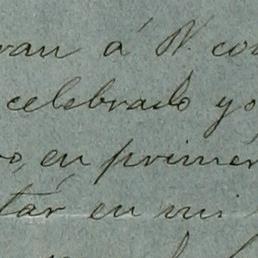 van á V. con
celebrado yo
o, en primer
tar en mi